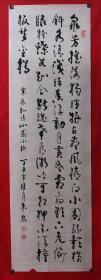 众芳摇落独暄妍占尽风情向小园疏影横
斜水清浅暗香浮动月黄昏霜禽欲下先偷
眼粉蝶如知合断魂幸有微吟可相狎不须檀
板共金樽
宋林和靖山园小梅